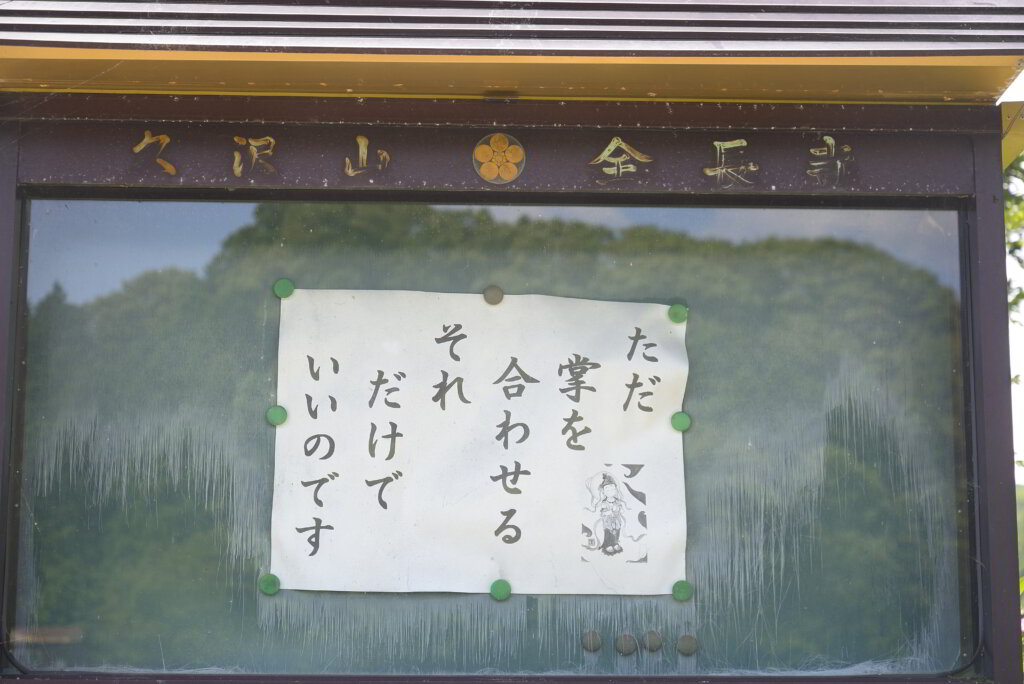 久沢山 金長寺
ただ
掌を
合わせる
それ
だけで
いいのです